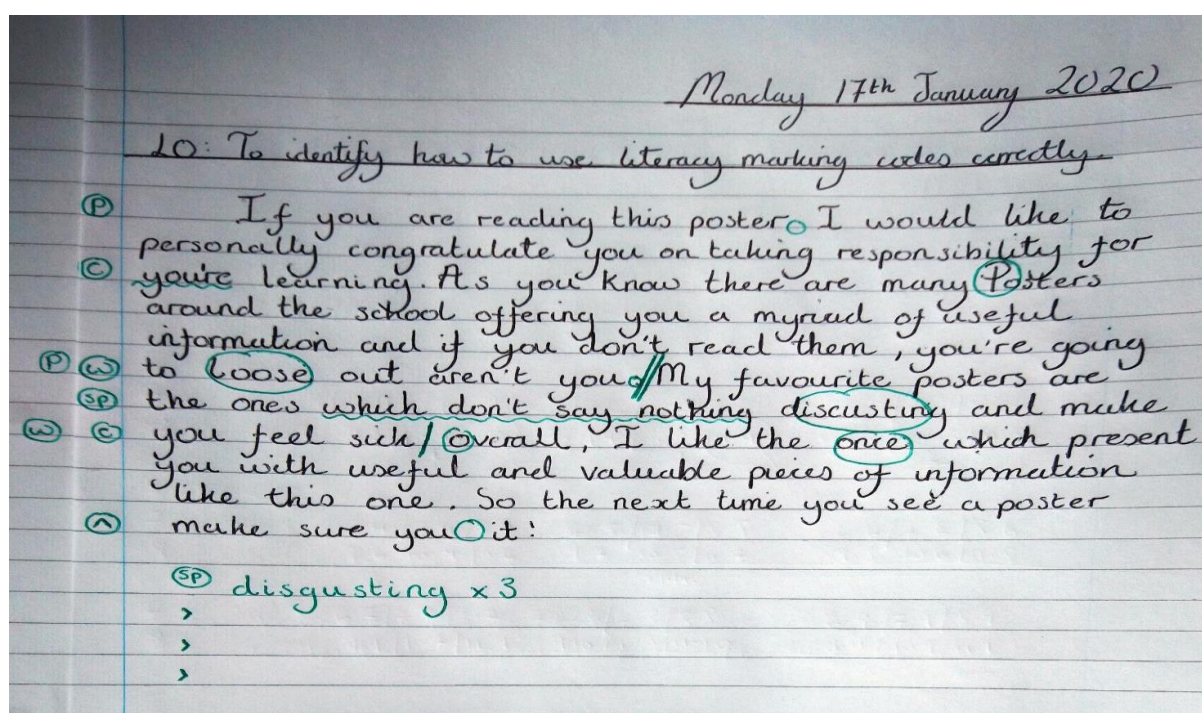 Monday 17th January 2020
LO: To identify how to use literacy marking codes correctly.
P If you are reading this poster I would like to
personally congratulate you on taking responsibility for
C you're learning. As you know there are many Posters
around the school offering you a myriad of useful
information and if you don't read them, you're going
P W to loose out aren't you // My favourite posters are
SP the ones which don't say nothing discusting and make
W C you feel sick / Overall, I like the once which present
you with useful and valuable pieces of information
like this one. So the next time you see a poster
^ make sure you it!
SP disgusting x3
>
>
>